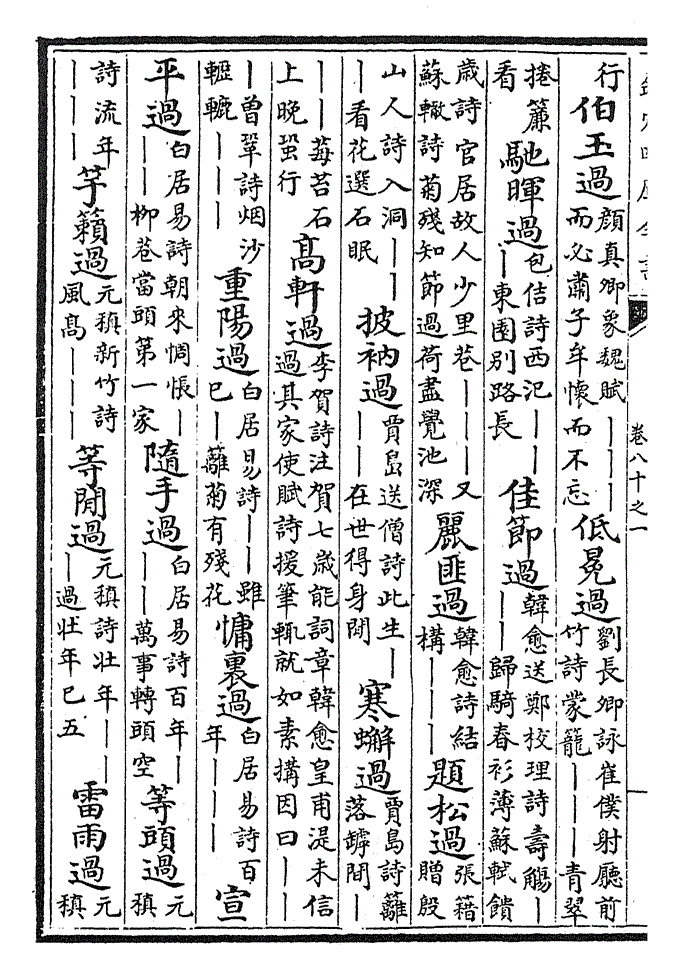 欽定四庫全書 卷八十之一
行伯玉過顔真卿象魏賦―――而必肅子牟懷而不忘低冕過劉長卿詠崔僕射廳前竹詩蒙籠―――青翠
捲簾看馳暉過包佶詩西汜―――東園別路長佳節過韓愈送鄭校理詩壽觴―――歸騎春衫薄蘇軾饋
歲詩官居故人少里巷―――又蘇轍詩菊殘知節過荷盡覺池深麗匪過韓愈詩結構―――題松過張籍贈殷
山人詩入洞―――看花選石眠披衲過賈島送僧詩此生―――在世得身閒寒蠏過賈島詩籬落罅間―
――莓苔石上晚蛩行高軒過李賀詩注賀七歲能詞章韓愈皇甫湜未信過其家使賦詩援筆輒就如素搆因曰――
―曾鞏詩烟沙轣轆―――重陽過白居易詩――雖已―籬菊有殘花慵裏過白居易詩百年―――宣
平過白居易詩朝來惆悵―――柳巷當頭第一家隨手過白居易詩百年―――萬事轉頭空等頭過元稹
詩流年―――竽籟過元稹新竹詩風髙―――等閒過元稹詩壯年―――過壯年已五雷雨過元稹